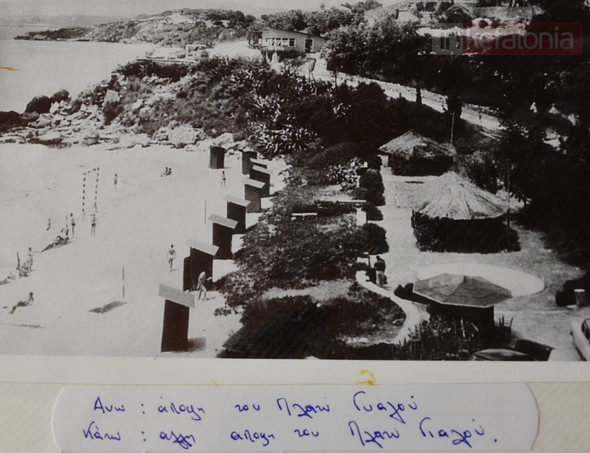 inkeratonia
Άνω : άποψη του Πλατύ Γυαλού
Κάτω : άλλη άποψη του Πλατύ Γιαλού.